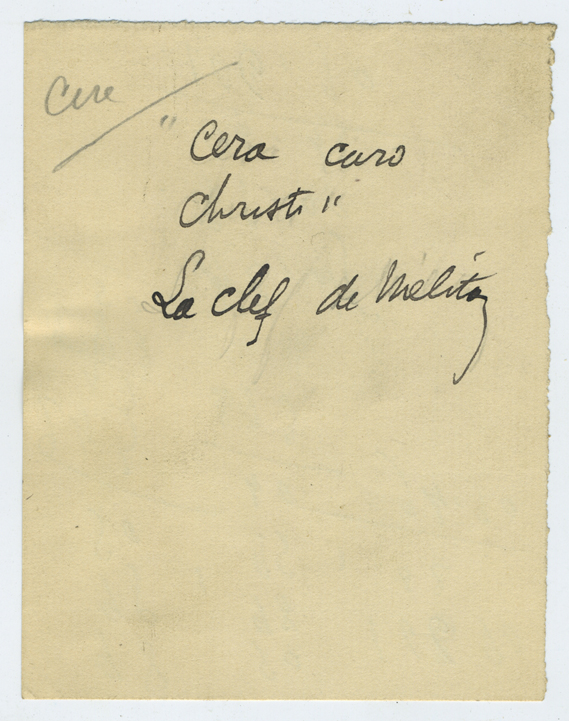 Cire
"Cera caro
Christi"
La clef de Méliton